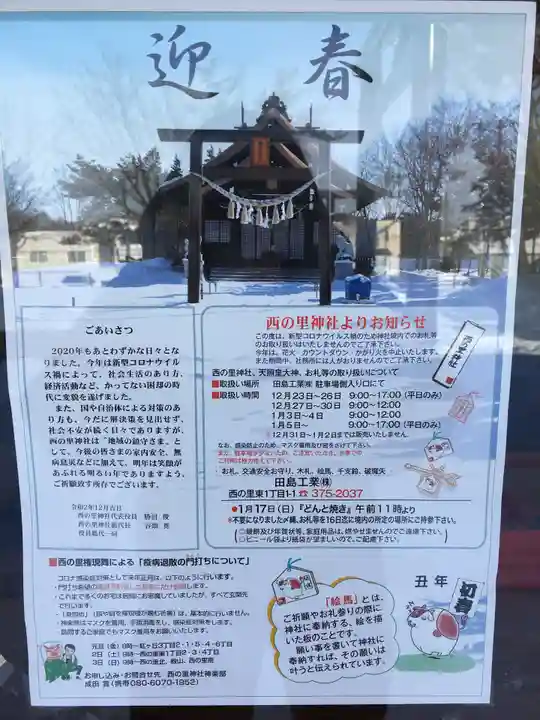 迎春
ごあいさつ
2020年もあとわずかな日々とな
りました。今年は新型コロナウイル
ス禍によって、社会生活のあり方、
経済活動など、かつてない困却の時
代に変貌を遂げました。
また、国や自治体による対策のあ
り方も、今だに解決策を見出せず、
社会不安が続く日々でありますが、
西の里神社は“地域の鎮守さま”と
して、今後の皆さまの家内安全、無
病息災などに加えて、明年は笑顔が
あふれる明るい年でありますよう、
ご祈願致す所存でございます。
令和2年12月吉日
西の里神社代表役員
西の里神社総代
役員総代一同
西の里神社よりお知らせ
この度は、新型コロナウイルス禍のため神社境内でのお札等
のお取り扱いはいたしませんのでご了承下さい。
今年は、花火・カウントダウン・かがり火を中止いたします。
また期間中、社務所には人がおりませんのでご了承下さい。
西の里神社、天照皇大神、お札等の取り扱いについて
■取扱い場所 田島工業㈱ 駐車場側入り口にて
■取扱い時間 12月23日~26日 9:00~17:00(平日のみ)
12月27日~30日 9:00~12:00
1月3日~4日 9:00~12:00
1月5日~ 9:00~17:00(平日のみ)
※12月31日~1月2日までは販売いたしません。
なお、感染防止のため、マスク着用及び密をさけて下さい。
・お札、交通安全お守り、木札、絵馬、干支鈴、破魔矢
田島工業㈱
西の里東1丁目1-1 ☎375-2037
●1月17日(日)『どんと焼き』午前11時より
※不要になりましたメ縄、お札等を16日迄に境内の所定の場所にご持参下さい。
○鏡餅及び年賀状等、家庭用品は、燃やせませんのでご遠慮下さい
○ビニール袋より紙袋が望ましいので、ご配慮下さい。
西の里神社
■西の里権現舞による「疫病退散の門打ちについて」
コロナ感染症対策として来年正月は、以下のように行います。
・これまで多くのお宅は居間にお邪魔していましたが、すべて玄関先
で行います。
・神楽衆はマスクを着用、手指消毒をし、感染対策をします。
訪問するご家庭でもマスク着用をお願いいたします。
元旦(金)9時~虹ヶ丘3丁目2・1・5・4・6丁目
2日(土)9時~西の里東1丁目2・3/4丁目
3日(日)9時~西の里北、椴山、西の里南
お申し込み・お問合せ先 西の里神社神楽部
成田 賞(携帯080-6070-1952)
「絵馬」とは、
ご祈願やお礼参りの際に
神社に奉納する、絵を描
いた板のことです。
願い事を書いて神社に
奉納すれば、その願いは
叶うと伝えられています。
丑年
初春